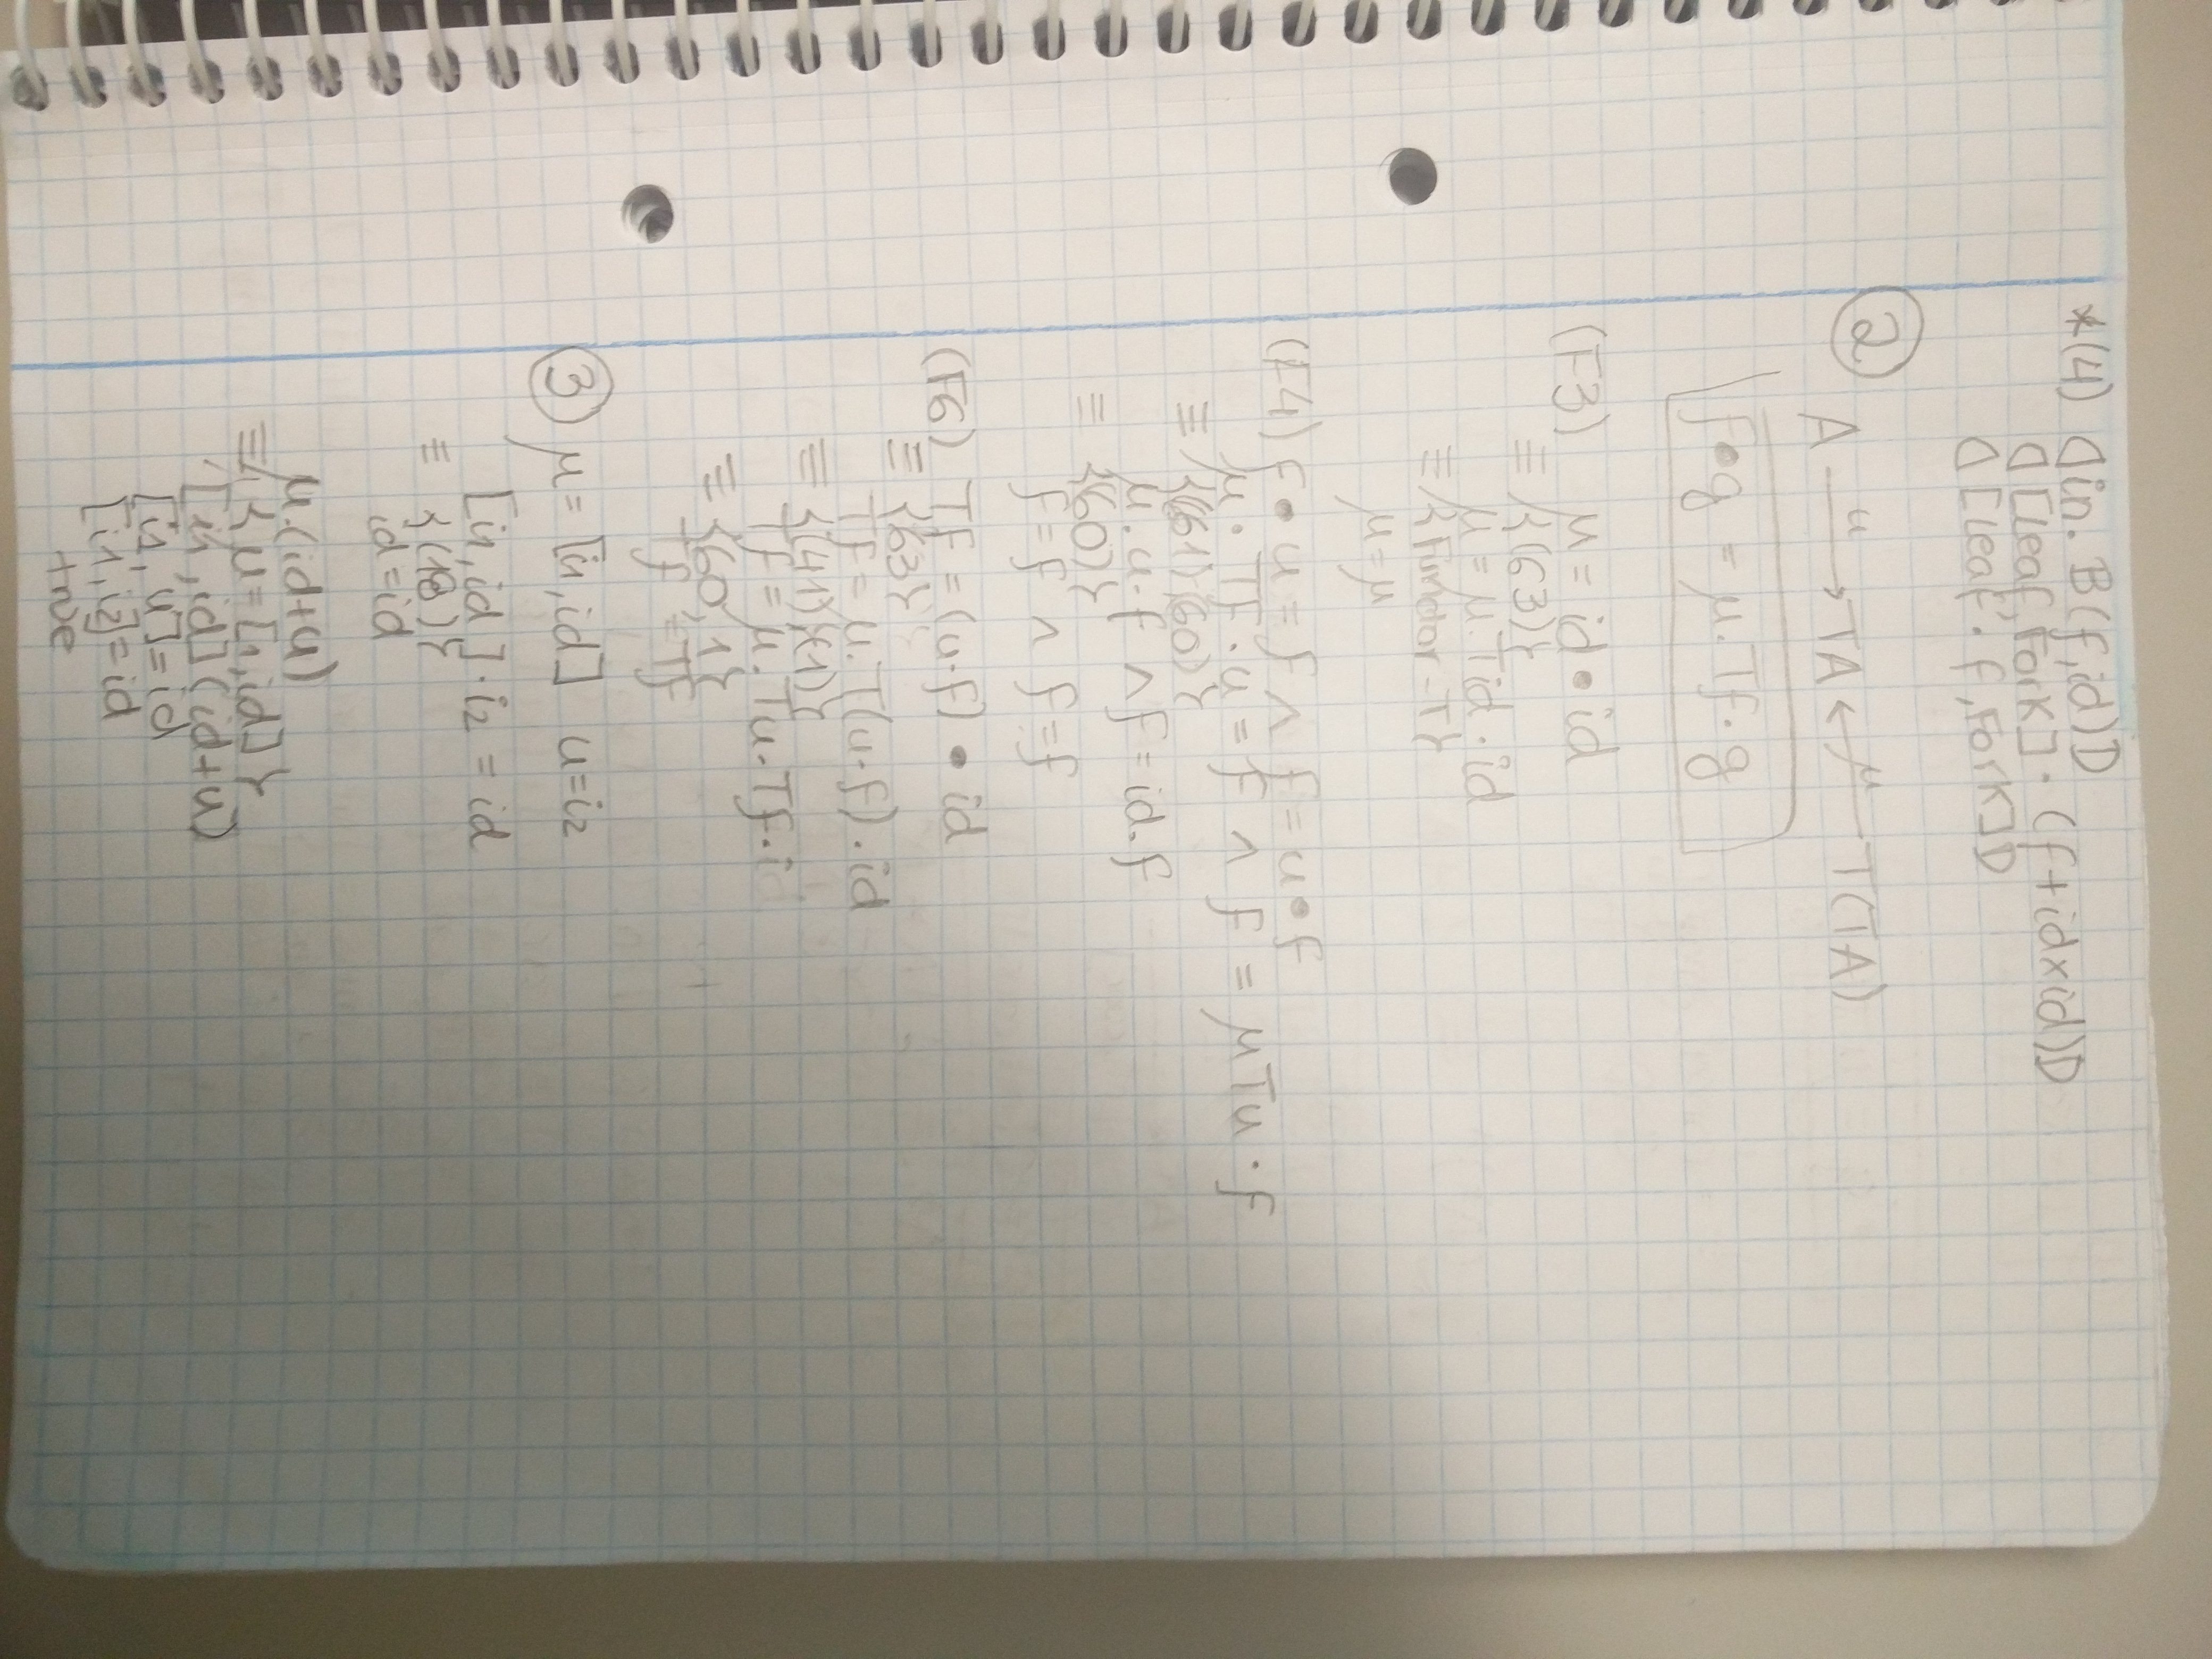 *(4) ⦇in. B(f,id)⦈
⦇[Leaf,Fork]·(f+id×id)⦈
⦇[Leaf·f,Fork]⦈
② A —u→ TA ←μ— T(TA)
f•g = μ.Tf.g
(F3) μ = id•id
≡ {(63)}
μ = μ.Tid.id
≡ {Functor-T}
μ=μ
(F4) f•u = f ∧ f = u•f
μ·Tf·u = f ∧ f = μTu·f
≡ {(61)(60)}
μ.u.f ∧ f = id.f
≡ {60)}
f=f ∧ f=f
(F6) Tf = (u·f)•id
≡ {63}
Tf = μ.T(u·f).id
≡ {(41),(1)}
Tf = μ.Tu.Tf.i
≡ {60,1}
Tf = Tf
③ μ= [i1,id] u=i2
[i1,id]·i2 = id
≡ {(18)}
id=id
μ.(id+u)
≡ {μ=[1,id]}
[i1,id](id+u)
[i1,u]=id
[i1,i2]=id
true